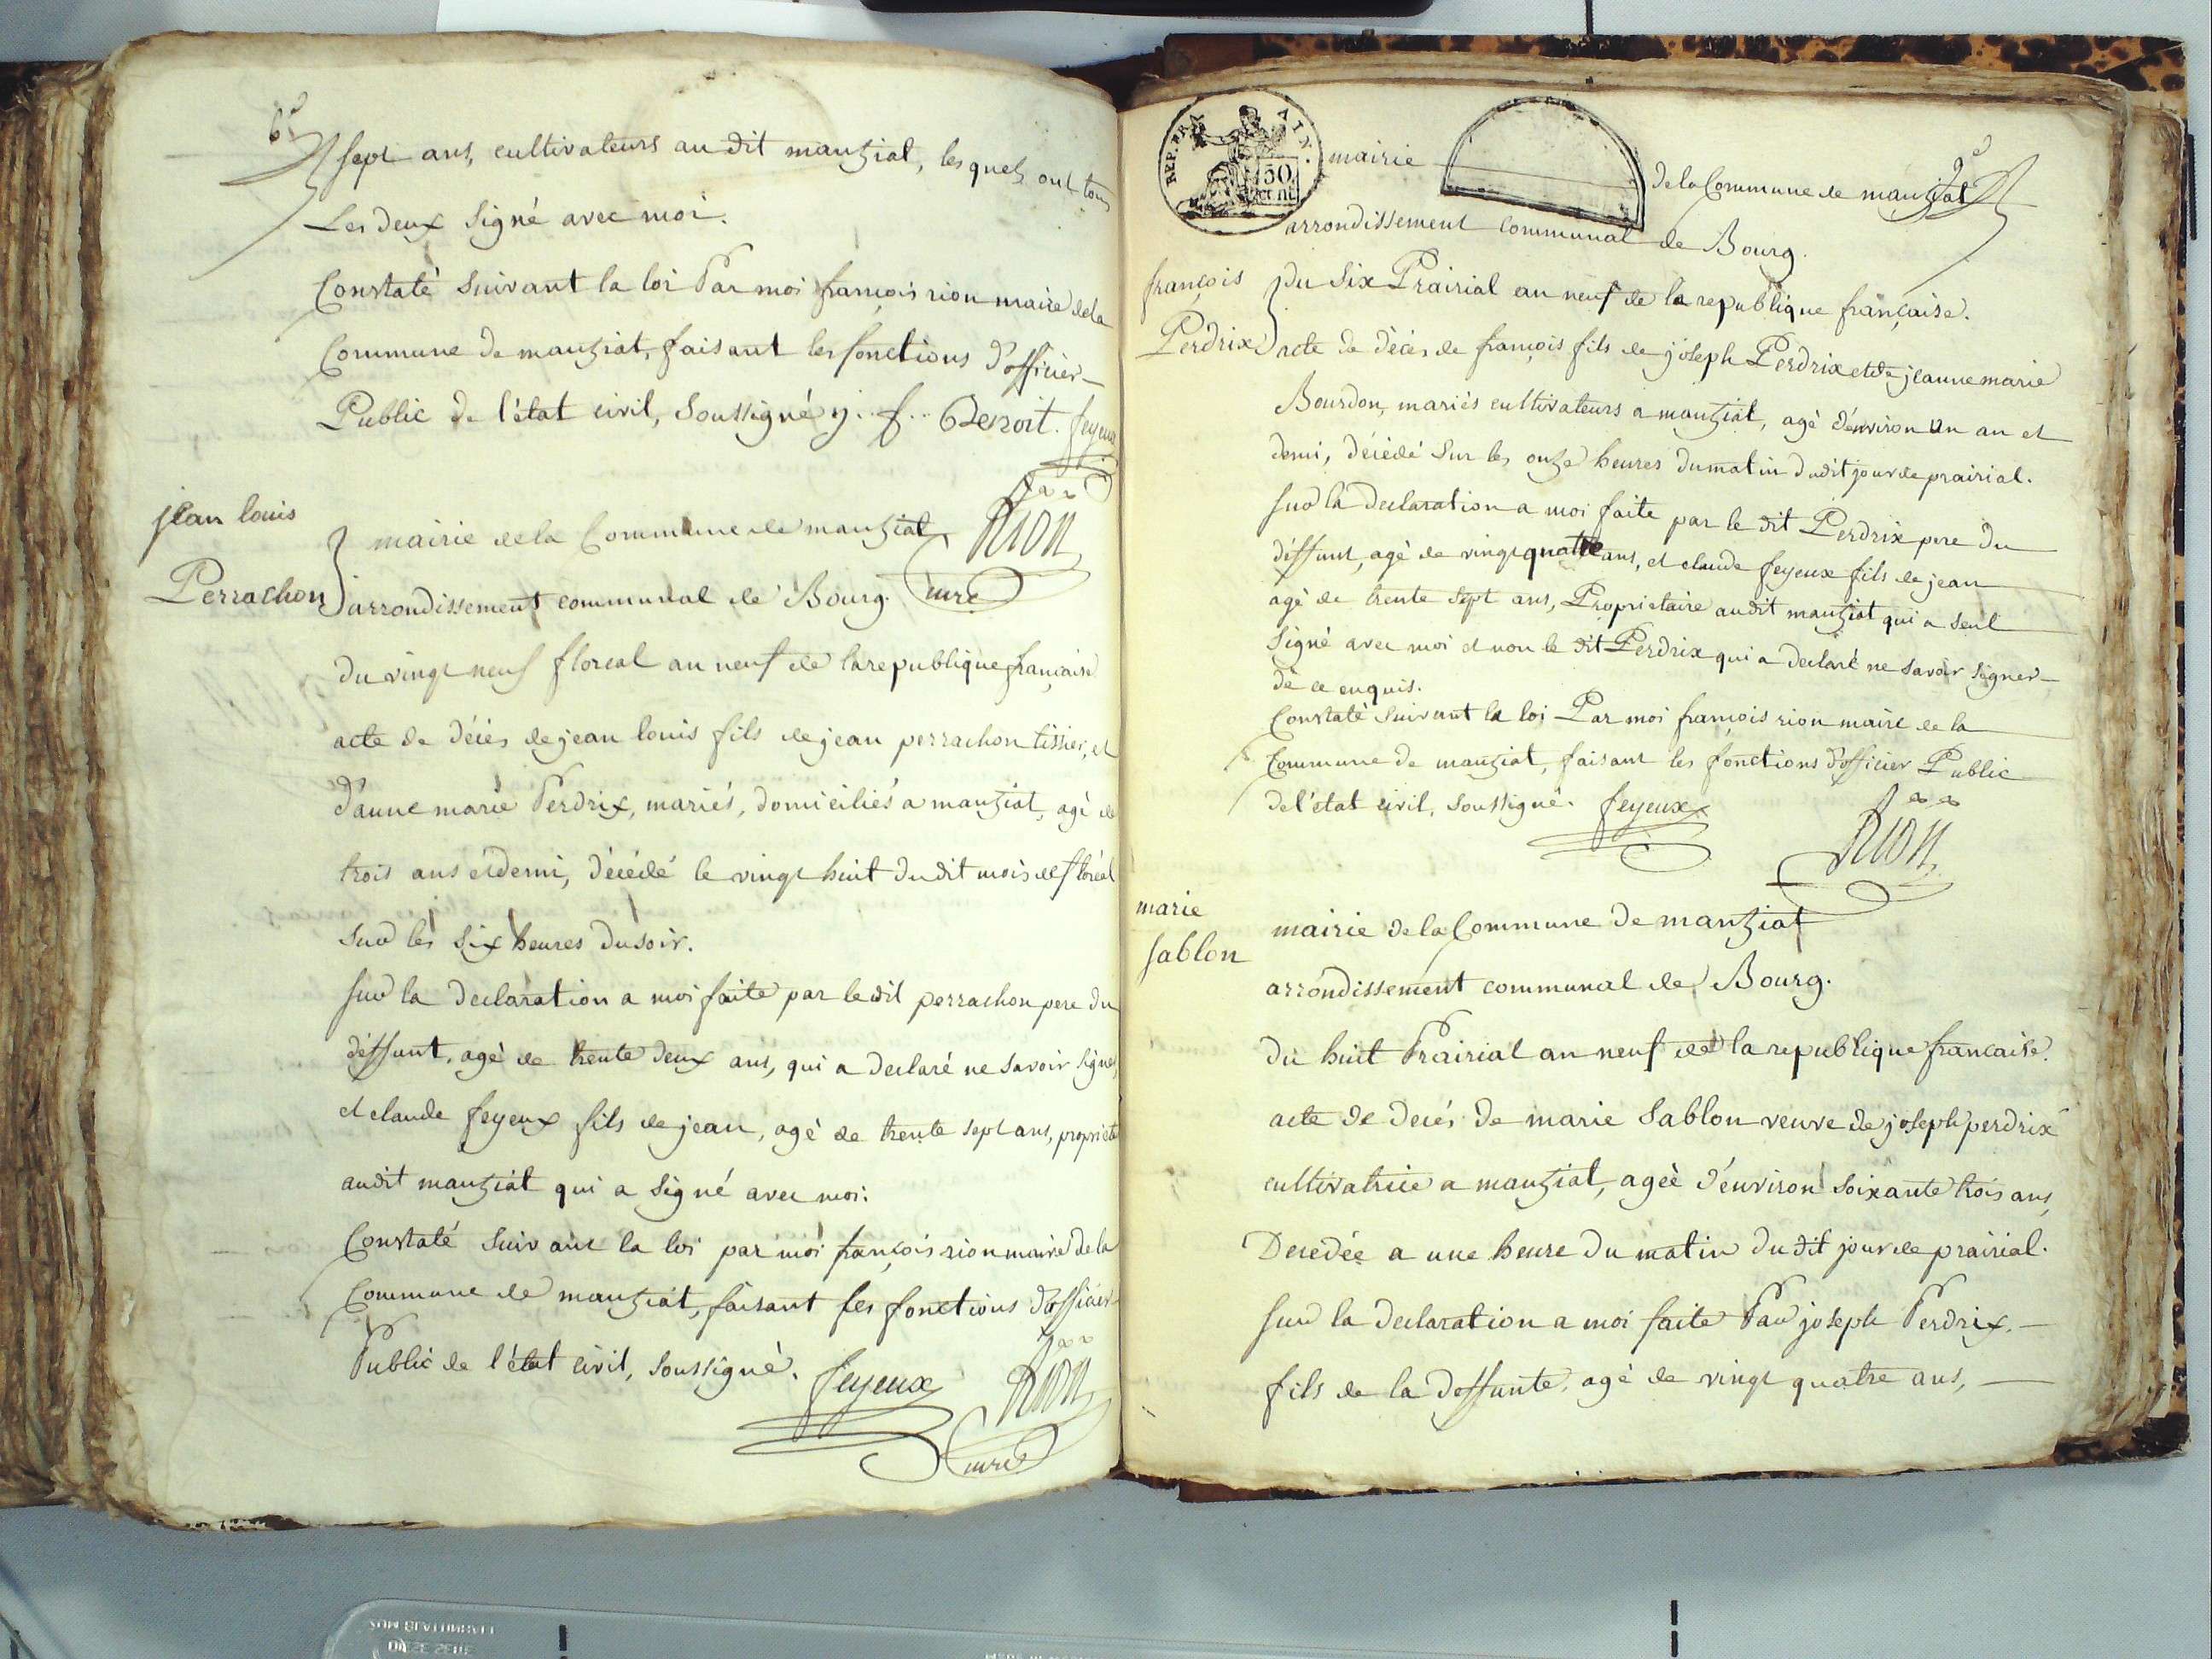 6e
sept ans, cultivateurs au dit manziat, lesquels ont tous
Les deux signé avec moi.
Constaté suivant la loi Par moi françois rion maire de la
Commune de manziat, faisant les fonctions d'officier
Public de l'état civil, soussigné y. f. Benoit. feyeux
Rion
mre
jean louis
Perrachon
mairie de la Commune de manziat
arrondissement communal de Bourg.
du vingt neuf floreal an neuf de la republique française
acte de décés de jean louis fils de jean perrachon tissier, et
d'anne marie Perdrix, mariés, domiciliés a manziat, agé de
trois ans et demi, décédé le vingt huit du dit mois de floréal
sur les six heures du soir.
sur la declaration a moi faite par le dit perrachon pere du
déffunt, agé de trente deux ans, qui a declaré ne savoir signer,
et claude feyeux fils de jean, agé de trente sept ans, propriéta
audit manziat qui a signé avec moi.
Constaté suivant la loi par moi françois rion maire de la
Commune de manziat, faisant les fonctions d'officier
Public de l'état civil, soussigné. feyeux
Rion
mre
REP. FRA. AIN.
50 cent
mairie de la Commune de manziat
arrondissement communal de Bourg.
françois
Perdrix
du six Prairial an neuf de la republique française.
acte de décés de françois fils de joseph Perdrix et de jeanne marie
Bourdon, mariés cultivateurs a manziat, agé d'environ un an et
demi, décédé sur les onze heures du matin dudit jour de prairial.
sur la declaration a moi faite par le dit Perdrix pere du
déffunt, agé de vingt quatre ans, et claude feyeux fils de jean
agé de trente sept ans, Proprietaire audit manziat qui a seul
signé avec moi et non le dit Perdrix qui a declaré ne savoir signer
de ce enquis.
Constaté suivant la loi Par moi françois rion maire de la
Commune de manziat, faisant les fonctions d'officier Public
de l'état civil, soussigné. feyeux
Rion
marie
sablon
mairie de la Commune de manziat
arrondissement communal de Bourg.
du huit Prairial an neuf de la republique française.
acte de decés de marie sablon veuve de joseph perdrix
cultivatrice a manziat, agée d'environ soixante trois ans,
Decedée a une heure du matin du dit jour de prairial.
sur la declaration a moi faite Par joseph Perdrix,
fils de la deffunte, agé de vingt quatre ans,